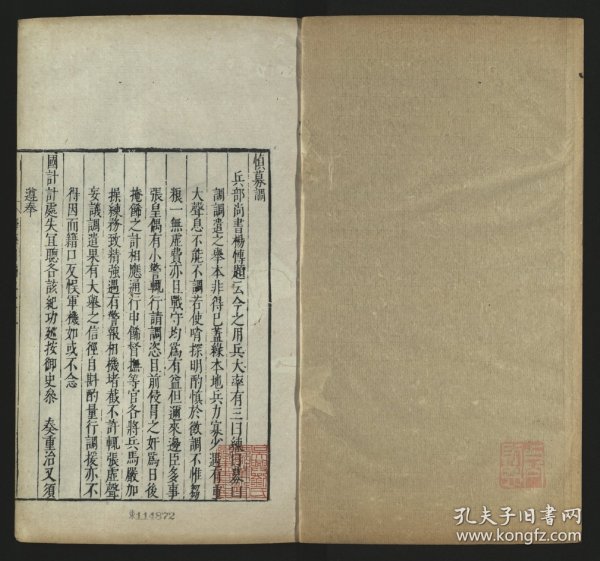 慎募調
兵部尚書楊博題云今之用兵大率有三曰練曰募曰
調調遣之舉本非得已蓋緣本地兵力寡少遇有重
大聲息不能不調若使哨探明酌慎於徵調不惟芻
糗一無虛費亦且戰守均爲有益但邇來邊臣多事
張皇偶有小警輒行請調恣目前侵冒之奸爲日後
掩飾之計相應通行申儆督撫等官各將兵馬嚴加
操練務致精強遇有警報相機堵截不許輒張虛聲
妄議調遣果有大舉之信徑自斟酌量行調援亦不
得因而藉口反悞軍機如或不念
國計計處失宜聽各該紀功巡按御史參 奏重治又須
遵奉
東114872
孔夫子旧书网
www.kongfz.com